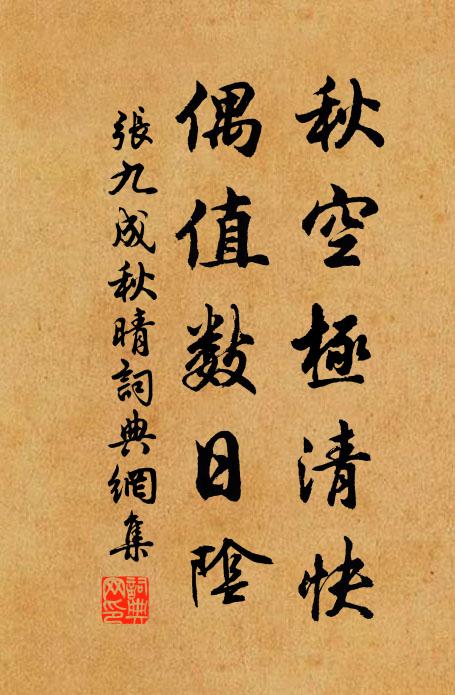 秋空極清快
偶值數日陰
張九成秋晴詞典網集
詞典網印